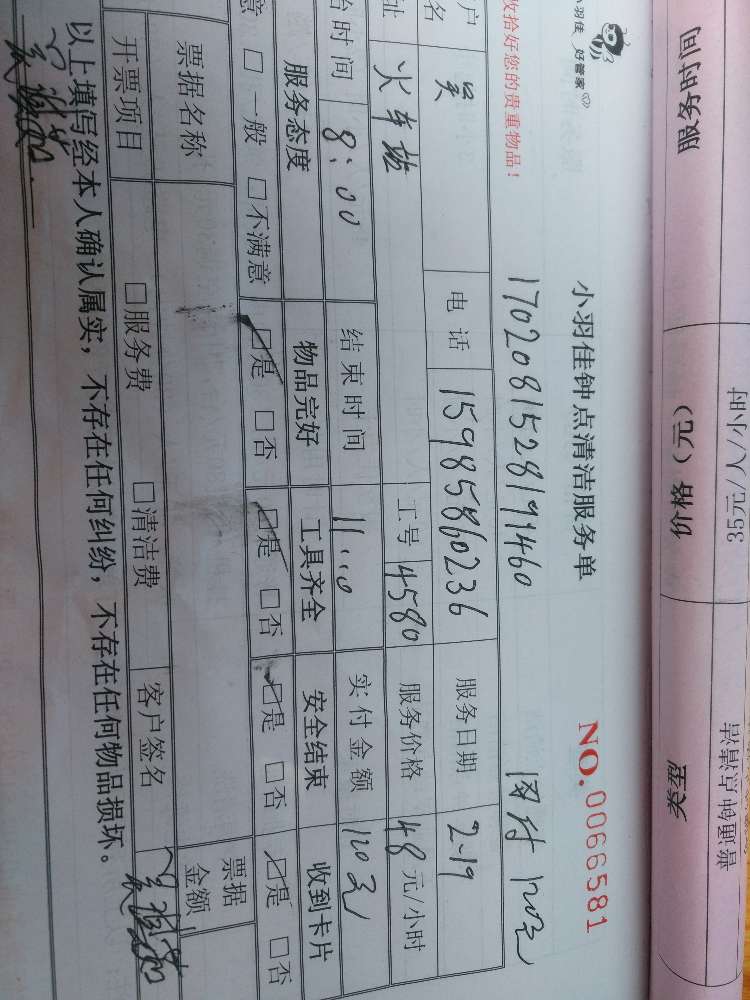 类型 普通钟点清洁
价格（元） 35元/人/小时
服务时间
小羽佳 好管家
收拾好您的贵重物品！
小羽佳钟点清洁服务单
NO.0066581
17020815281991460 网付120元
户名 吴 电话 15985860236 服务日期 2-19
址 火车站 工号 4580 服务价格 48元/小时
始时间 8:00 结束时间 11:00 实付金额 120元
服务态度 物品完好 工具齐全 安全结束 收到卡片
意 □一般 □不满意 □是 □否 □是 □否 □是 □否 □是 □否
票据名称 票据金额
开票项目 □服务费 □清洁费 客户签名
以上填写经本人确认属实，不存在任何纠纷，不存在任何物品损坏。